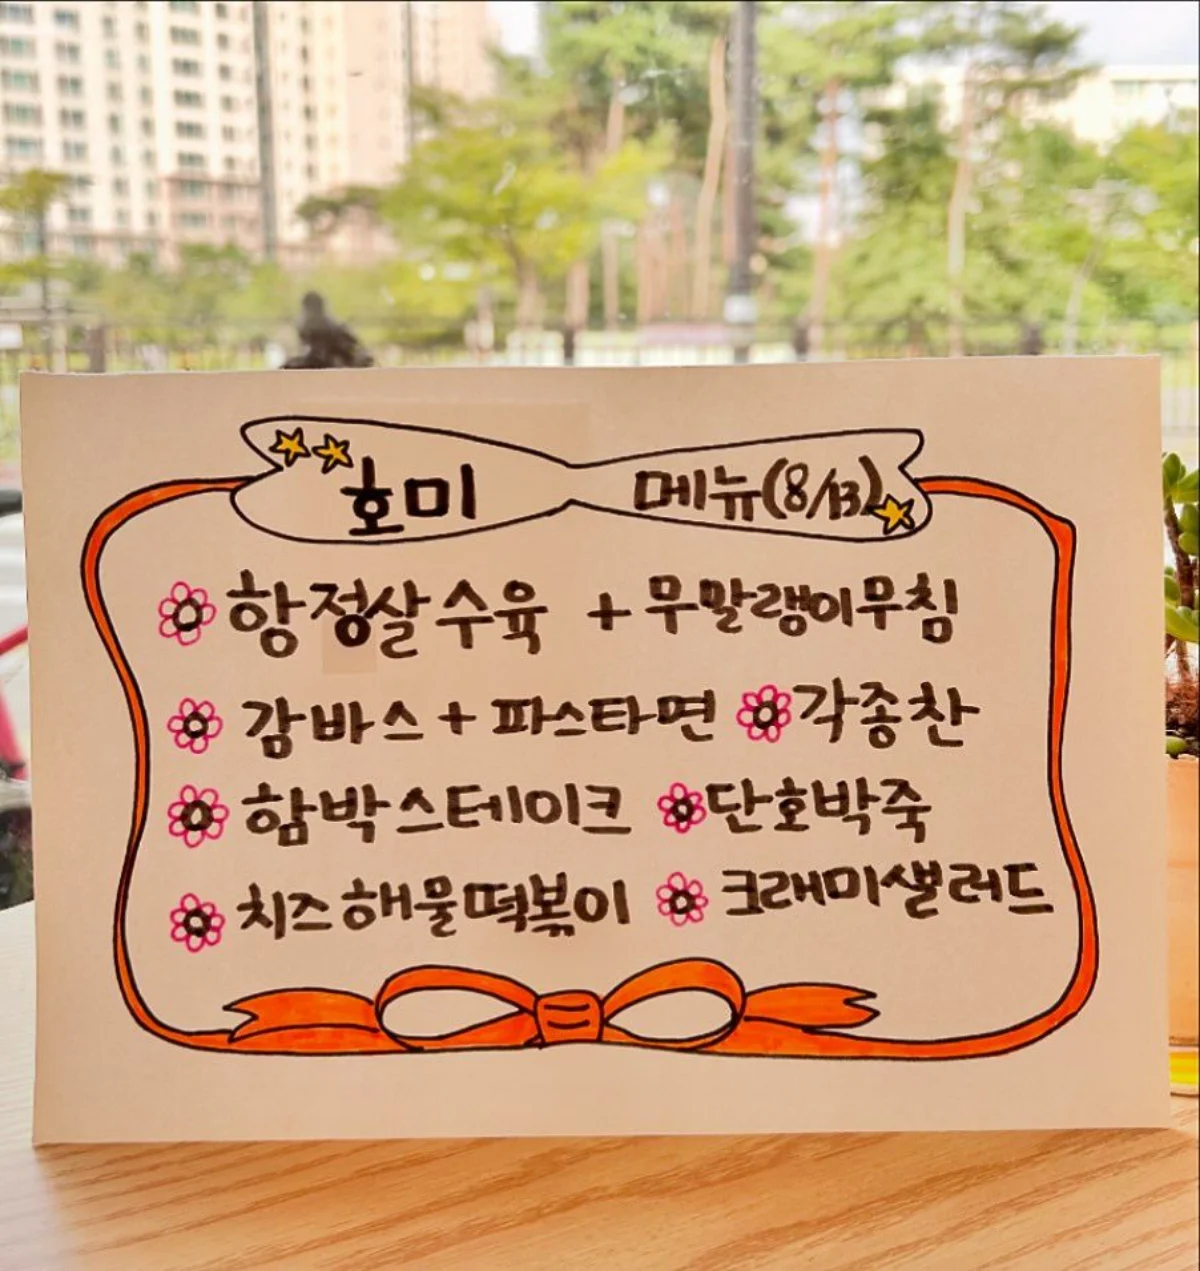 호미 메뉴(8/13)
항정살수육 + 무말랭이무침
감바스 + 파스타면 각종찬
함박스테이크 단호박죽
치즈해물떡볶이 크래미샐러드